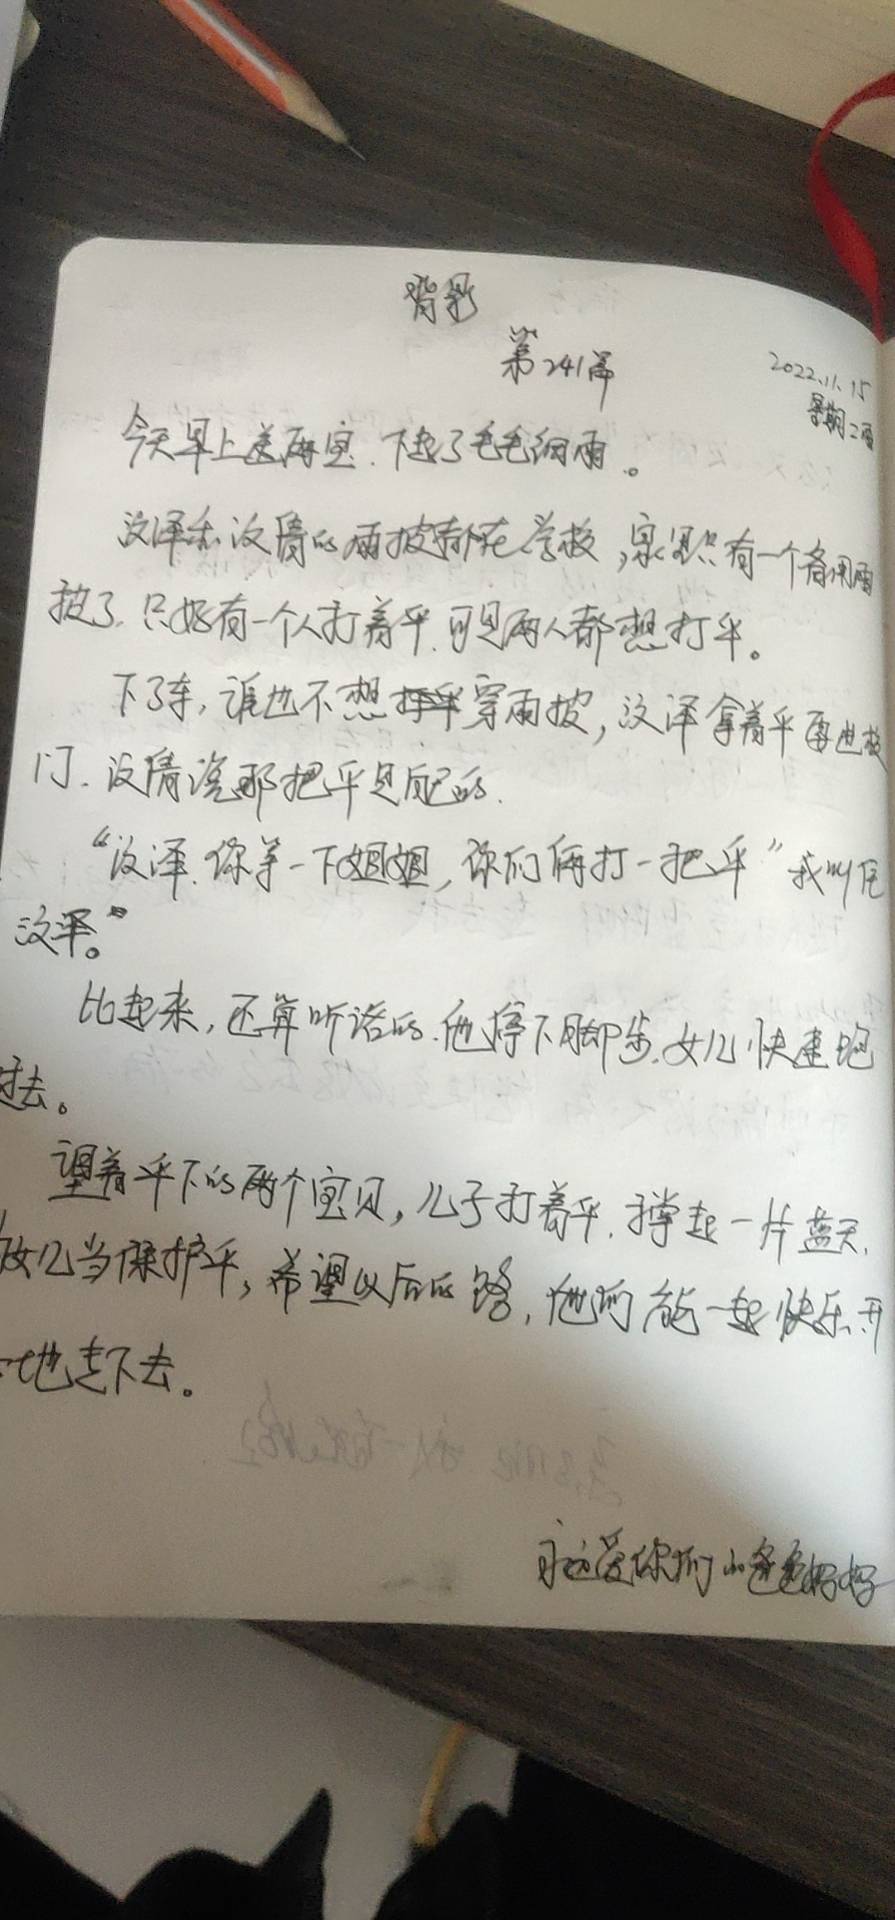 背影
第241篇
2022.11.15
星期二 雨
今天早上送两宝.下起了毛毛细雨。
汶泽和汶倩的雨披都在学校,家里只有一个备用雨
披了.只好有一个人打着伞.可是两人都想打伞。
下了车,谁也不想穿雨披,汶泽拿着伞要进校
门.汶倩说那把伞是自己的.
“汶泽.你等一下姐姐,你们俩打一把伞”我叫住
汶泽。”
比起来,还算听话的.他停下脚步.女儿快速跑
过去。
望着伞下的两个宝贝,儿子打着伞.撑起一片蓝天.
女儿当保护伞,希望以后的路,他们能一起快乐开
心地走下去。
永远爱你们的爸爸妈妈